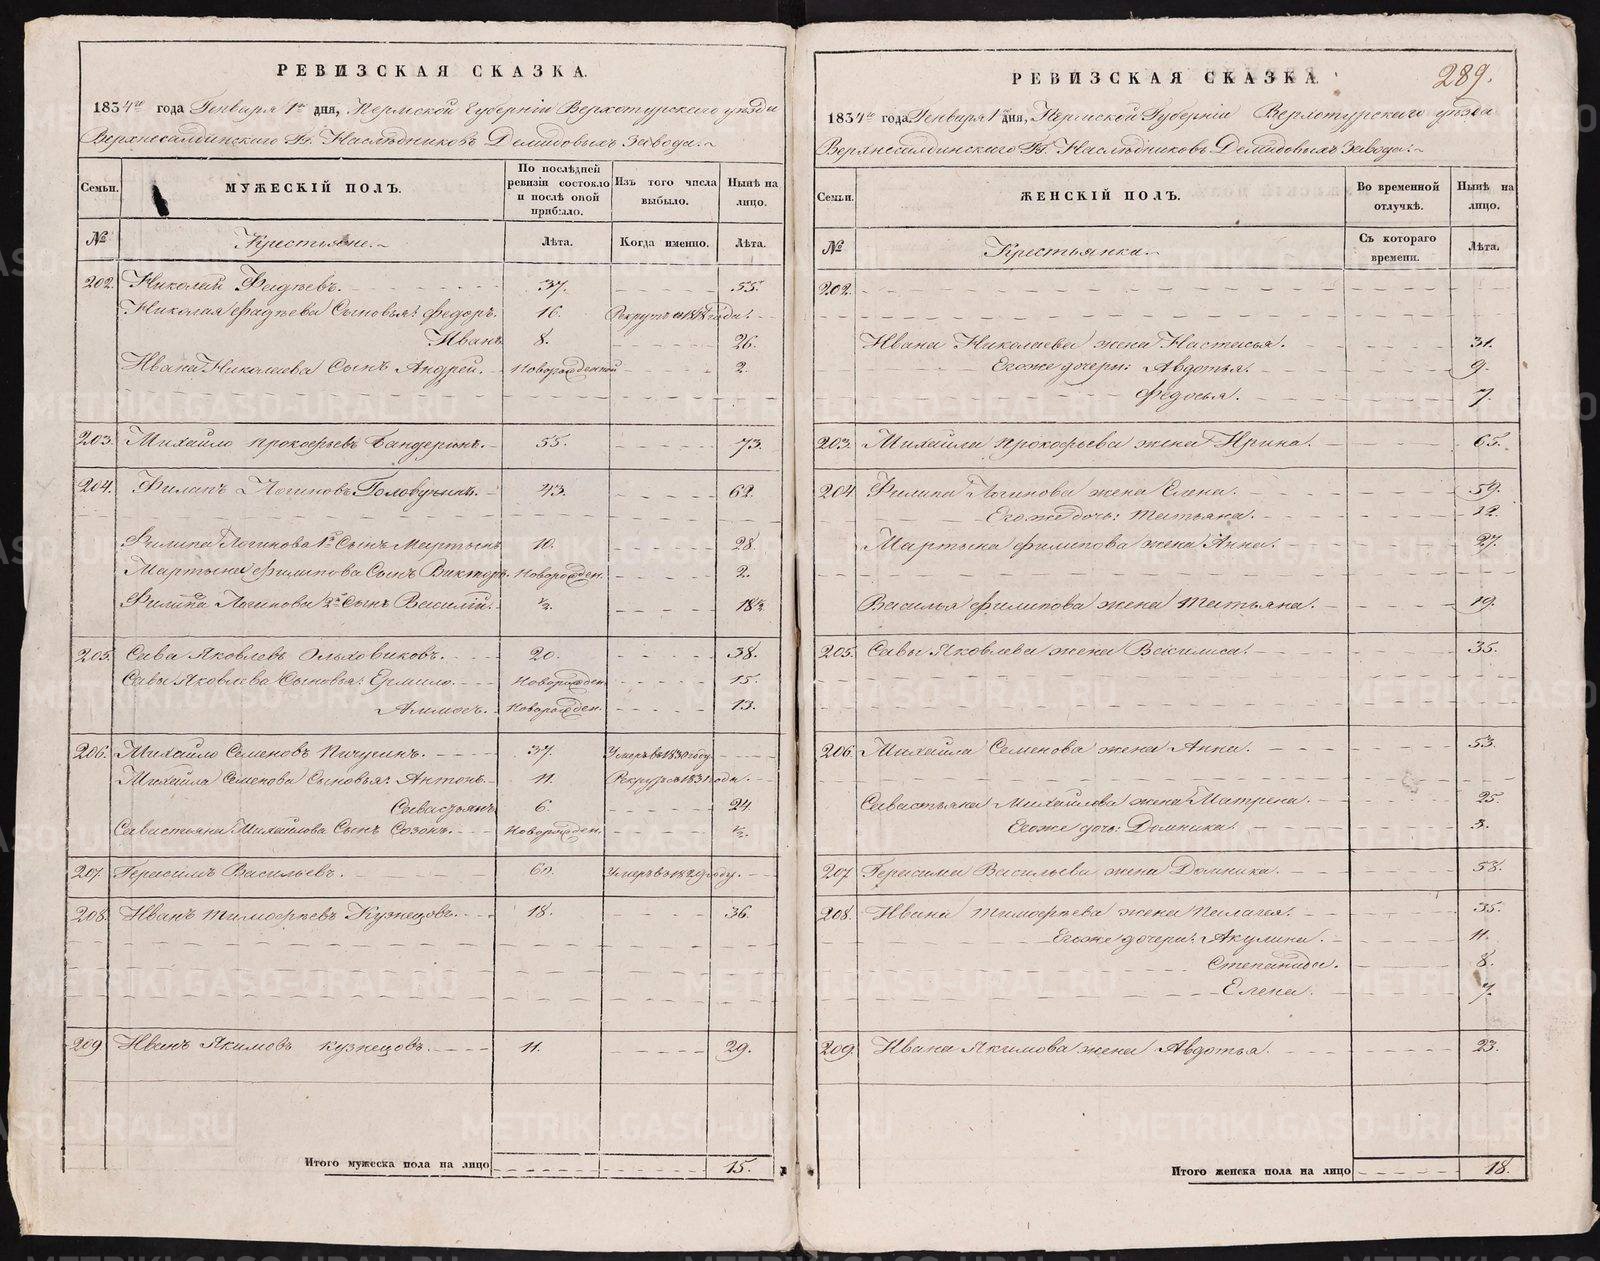 РЕВИЗСКАЯ СКАЗКА.
1834го года Генваря 1го дня, Пермской Губернiи Верхотурскаго уѣзда
Верхнесалдинскаго Гг. Наслѣдниковъ Демидовыхъ завода.
Семьи.
МУЖЕСКІЙ ПОЛЪ.
По послѣдней ревизіи состояло и послѣ оной прибыло.
Изъ того числа выбыло.
Нынѣ на лицо.
№
Крестьяне.
Лѣта.
Когда именно.
Лѣта.
202. Николай Фадѣевъ. 37. 55.
Николая Фадѣева Сыновья: Федоръ. 16. Рекрутъ в году.
Иванъ 8. 26.
Ивана Николаева Сынъ Андрей. Новорожденной 2.
203. Михайло Прокофьевъ Бандеринъ. 55. 73.
204. Филипъ Логиновъ Головчинъ. 43. 62.
Филипа Логинова 1й Сынъ Мартынъ 10. 28.
Мартына Филипова Сынъ Викторъ. Новорожден. 2.
Филипа Логинова 2й Сынъ Василій. ½. 18½.
205. Сава Яковлевъ Ольховиковъ. 20. 38.
Савы Яковлева Сыновья: Ермило. Новорожден. 15.
Аммосъ. Новорожден. 13.
206. Михайло Семеновъ Пичугинъ. 37. Умеръ въ 1830 году
Михайла Семенова Сыновья: Антонъ. 11. Рекрутъ въ 1831 году.
Савастьянъ 6. 24.
Савастьяна Михайлова Сынъ Созонъ. Новорожден. ½.
207. Герасимъ Васильевъ. 60. Умеръ въ 1829 году.
208. Иванъ Тимофѣевъ Кузнецовъ. 18. 36.
209. Иванъ Якимовъ Кузнецовъ. 11. 29.
Итого мужеска пола на лицо 15.
РЕВИЗСКАЯ СКАЗКА.
289.
1834го года Генваря 1го дня, Пермской Губернiи Верхотурскаго уѣзда
Верхнесалдинскаго Гг. Наслѣдниковъ Демидовыхъ завода.
Семьи.
ЖЕНСКІЙ ПОЛЪ.
Во временной отлучкѣ.
Нынѣ на лицо.
№
Крестьянки.
Съ котораго времени.
Лѣта.
202.
Ивана Николаева жена Настасья. 31.
Егоже дочери: Авдотья. 9.
Федосья. 7.
203. Михайла Прокофьева жена Ирина. 65.
204. Филипа Логинова жена Елена. 59.
Егоже дочь: Татьяна. 12.
Мартына Филипова жена Анна. 27.
Василья Филипова жена Татьяна. 19.
205. Савы Яковлева жена Василиса. 35.
206. Михайла Семенова жена Анна. 53.
Савастьяна Михайлова жена Матрена. 25.
Егоже дочь: Домника. 3.
207 Герасима Васильева жена Домника. 58.
208. Ивана Тимофѣева жена Пелагея. 35.
Егоже дочери: Акулина. 11.
Степанида. 8.
Елена. 7.
209. Ивана Якимова жена Авдотья. 23.
Итого женска пола на лицо 18.